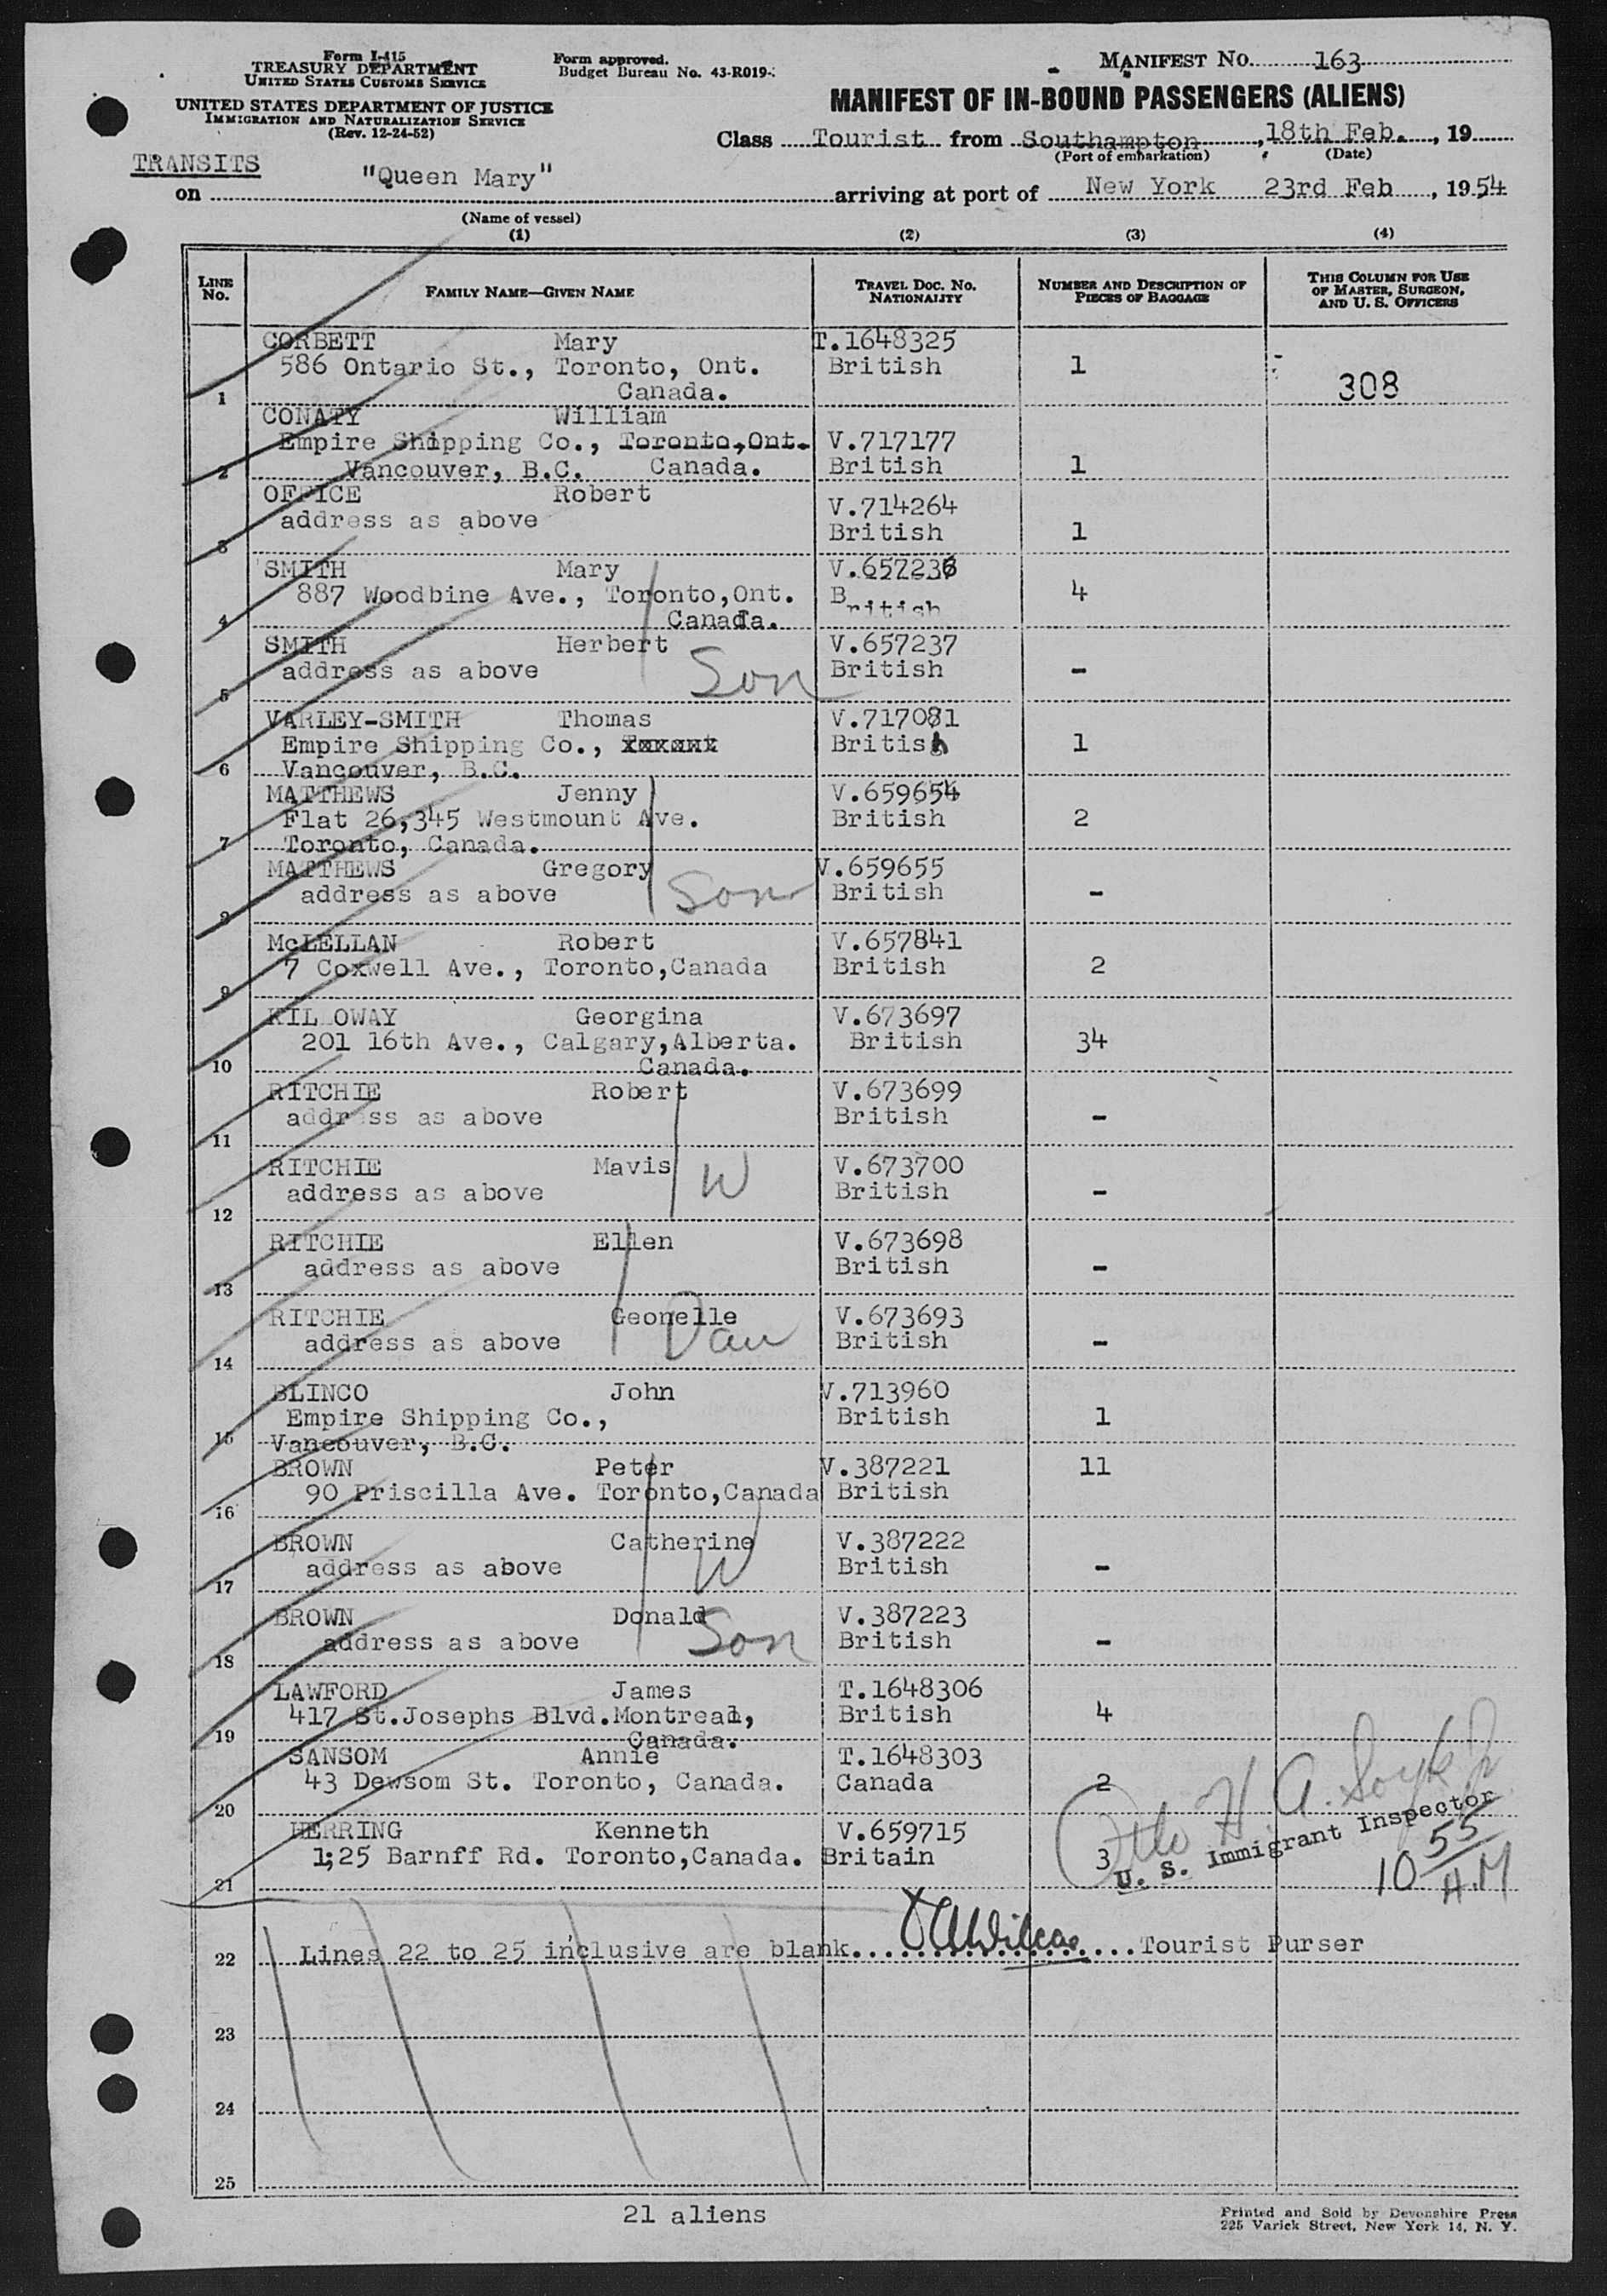 Form I-415
TREASURY DEPARTMENT
UNITED STATES CUSTOMS SERVICE
UNITED STATES DEPARTMENT OF JUSTICE
IMMIGRATION AND NATURALIZATION SERVICE
(Rev. 12-24-52)
Form approved.
Budget Bureau No. 43-R019-
MANIFEST NO. 163
MANIFEST OF IN-BOUND PASSENGERS (ALIENS)
Class Tourist from Southampton, 18th Feb., 19
(Port of embarkation) (Date)
TRANSITS
on "Queen Mary" arriving at port of New York 23rd Feb, 1954
(Name of vessel)
(1) (2) (3) (4)
LINE NO. FAMILY NAME—GIVEN NAME TRAVEL DOC. NO. NATIONALITY NUMBER AND DESCRIPTION OF PIECES OF BAGGAGE THIS COLUMN FOR USE OF MASTER, SURGEON, AND U. S. OFFICERS
CORBETT Mary T.1648325
586 Ontario St., Toronto, Ont. British 1
1 Canada. 308
CONATY William
Empire Shipping Co., Toronto,Ont. V.717177
2 Vancouver, B.C. Canada. British 1
OFFICE Robert V.714264
address as above British 1
3
SMITH Mary V.657236
887 Woodbine Ave., Toronto,Ont. British 4
4 Canada.
SMITH Herbert V.657237
address as above Son British -
5
VARLEY-SMITH Thomas V.717081
Empire Shipping Co., British 1
6 Vancouver, B.C.
MATTHEWS Jenny V.659654
Flat 26,345 Westmount Ave. British 2
7 Toronto, Canada.
MATTHEWS Gregory V.659655
address as above Son British -
8
McLELLAN Robert V.657841
7 Coxwell Ave., Toronto,Canada British 2
9
KIL OWAY Georgina V.673697
201 16th Ave., Calgary,Alberta. British 34
10 Canada.
RITCHIE Robert V.673699
addr ss as above British -
11
RITCHIE Mavis W V.673700
address as above British -
12
RITCHIE Ellen V.673698
address as above British -
13
RITCHIE Geonelle V.673693
address as above Dau British -
14
BLINCO John V.713960
Empire Shipping Co., British 1
15 Vancouver, B.C.
BROWN Peter V.387221 11
90 Priscilla Ave. Toronto,Canada British
16
BROWN Catherine V.387222
address as above W British -
17
BROWN Donald V.387223
address as above Son British -
18
LAWFORD James T.1648306
417 St.Josephs Blvd.Montreal, British 4
19 Canada.
SANSOM Annie T.1648303
43 Dewsom St. Toronto, Canada. Canada 2
20
HERRING Kenneth V.659715
1;25 Barnff Rd. Toronto,Canada. Britain 3
21
Otto H. A.
U. S. Immigrant Inspector
10 55 A.M
22 Lines 22 to 25 inclusive are blank. Wilcox Tourist Purser
23
24
25
21 aliens
Printed and Sold by Devonshire Press
225 Varick Street, New York 14, N. Y.